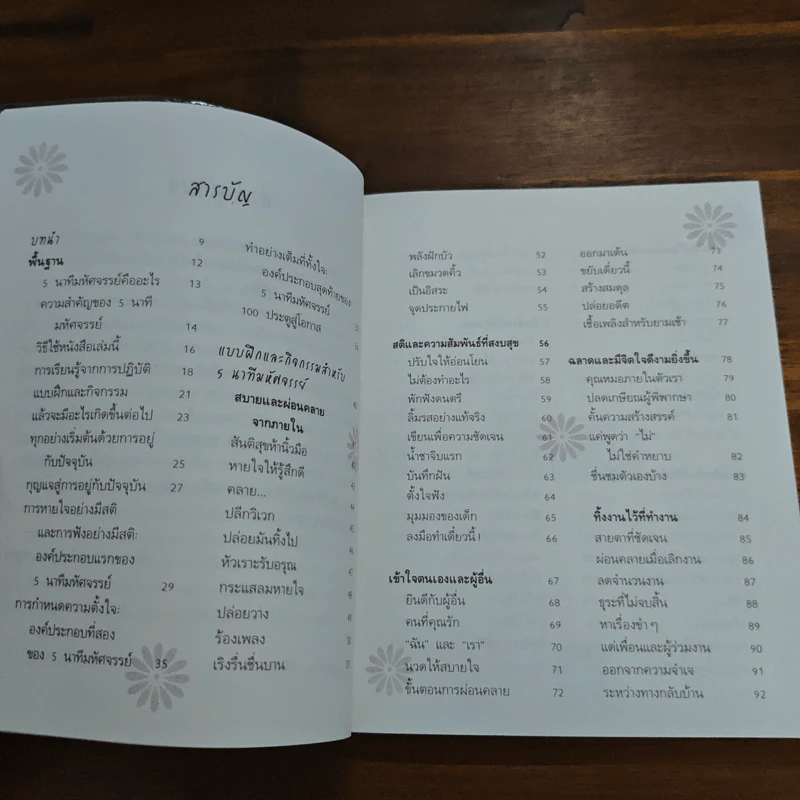 สารบัญ
บทนำ 9
พื้นฐาน 12
5 นาทีมหัศจรรย์คืออะไร 13
ความสำคัญของ 5 นาที
มหัศจรรย์ 14
วิธีใช้หนังสือเล่มนี้ 16
การเรียนรู้จากการปฏิบัติ 18
แบบฝึกและกิจกรรม 21
แล้วจะมีอะไรเกิดขึ้นต่อไป 23
ทุกอย่างเริ่มต้นด้วยการอยู่
กับปัจจุบัน 25
กุญแจสู่การอยู่กับปัจจุบัน 27
การหายใจอย่างมีสติ
และการฟังอย่างมีสติ:
องค์ประกอบแรกของ
5 นาทีมหัศจรรย์ 29
การกำหนดความตั้งใจ:
องค์ประกอบที่สอง
ของ 5 นาทีมหัศจรรย์ 35
ทำอย่างเต็มที่ทั้งใจ:
องค์ประกอบสุดท้ายของ
5 นาทีมหัศจรรย์
100 ประตูสู่โอกาส
แบบฝึกและกิจกรรมสำหรับ
5 นาทีมหัศจรรย์
สบายและผ่อนคลาย
จากภายใน
สันติสุขห้านิ้วมือ
หายใจให้รู้สึกดี
คลาย...
ปลีกวิเวก
ปล่อยมันทิ้งไป
หัวเราะรับอรุณ
กระแสลมหายใจ
ปล่อยวาง
ร้องเพลง
เริงรื่นชื่นบาน
พลังฝักบัว 52
เลิกขมวดคิ้ว 53
เป็นอิสระ 54
จุดประกายไฟ 55
สติและความสัมพันธ์ที่สงบสุข 56
ปรับใจให้อ่อนโยน 57
ไม่ต้องทำอะไร 58
พักฟังดนตรี 59
ลิ้มรสอย่างแท้จริง 60
เขียนเพื่อความชัดเจน 61
น้ำชาจิบแรก 62
บันทึกฝัน 63
ตั้งใจฟัง 64
มุมมองของเด็ก 65
ลงมือทำเดี๋ยวนี้! 66
เข้าใจตนเองและผู้อื่น 67
ยินดีกับผู้อื่น 68
คนที่คุณรัก 69
"ฉัน" และ "เรา" 70
นวดให้สบายใจ 71
ขั้นตอนการผ่อนคลาย 72
ออกมาเต้น 73
ขยับเดี๋ยวนี้ 74
สร้างสมดุล 75
ปล่อยอดีต 76
เชื้อเพลิงสำหรับยามเช้า 77
ฉลาดและมีจิตใจดีงามยิ่งขึ้น 78
คุณหมอภายในตัวเรา 79
ปลดเกษียณผู้พิพากษา 80
คั้นความสร้างสรรค์ 81
แค่พูดว่า "ไม่"
ไม่ใช่คำหยาบ 82
ชื่นชมตัวเองบ้าง 83
ทิ้งงานไว้ที่ทำงาน 84
สายตาที่ชัดเจน 85
ผ่อนคลายเมื่อเลิกงาน 86
ลดจำนวนงาน 87
ธุระที่ไม่จบสิ้น 88
หาเรื่องขำๆ 89
แด่เพื่อนและผู้ร่วมงาน 90
ออกจากความจำเจ 91
ระหว่างทางกลับบ้าน 92